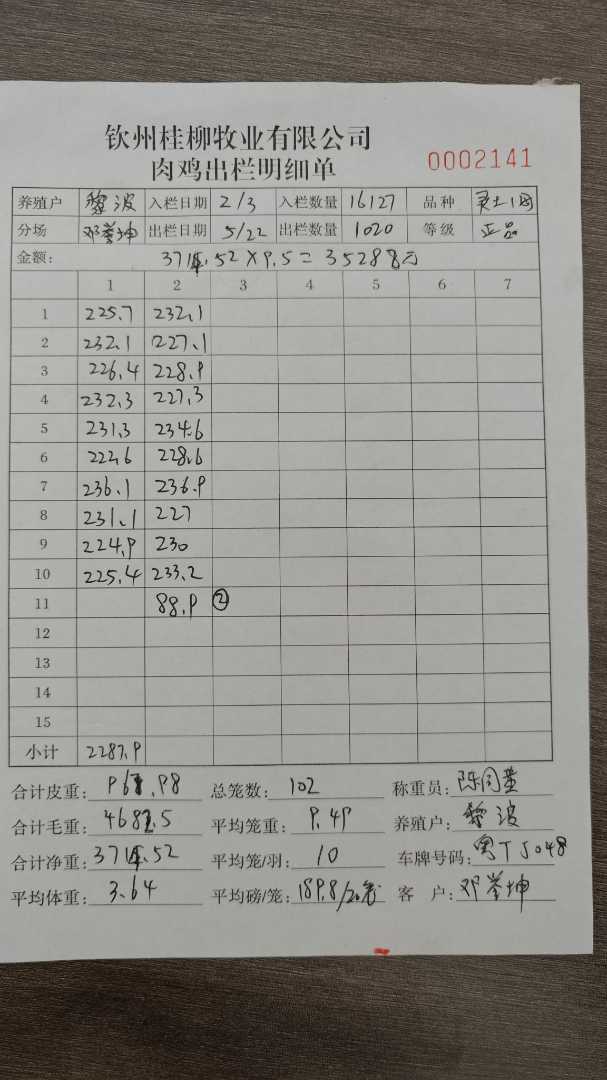 钦州桂柳牧业有限公司
肉鸡出栏明细单 0002141
养殖户 黎波 入栏日期 2/3 入栏数量 16127 品种
分场 邓誉坤 出栏日期 5/22 出栏数量 1020 等级 正品
金额: 3714.52×9.5=35288元
1 2 3 4 5 6 7
1 225.7 232.1
2 232.1 227.1
3 226.4 228.9
4 232.3 227.3
5 231.3 234.6
6 222.6 228.6
7 236.1 236.9
8 231.1 227
9 224.9 230
10 225.4 233.2
11 88.9 ②
12
13
14
15
小计 2287.9
合计皮重: 967.98 总笼数: 102 称重员:
合计毛重: 4682.5 平均笼重: 9.49 养殖户: 黎波
合计净重: 3714.52 平均笼/羽: 10 车牌号码: 粤TJ048
平均体重: 3.64 平均磅/笼: 189.8/20 客户: 邓誉坤